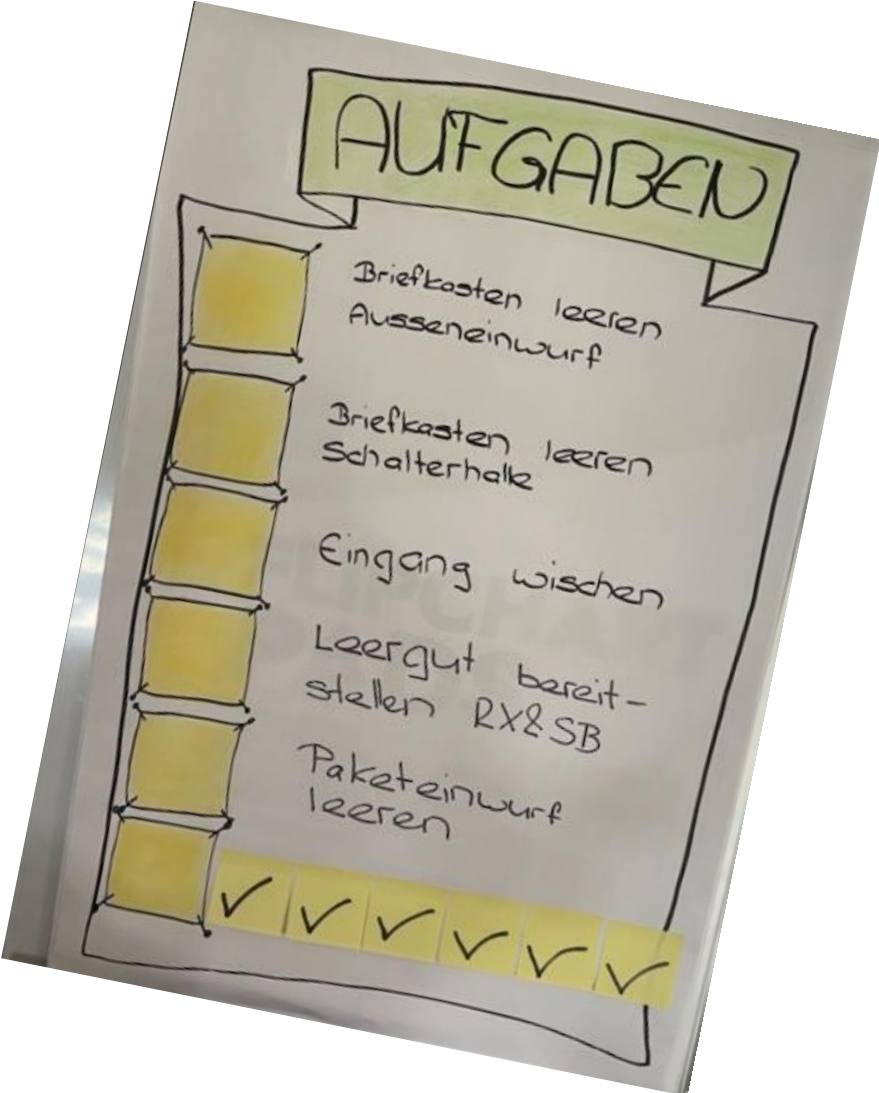 AUFGABEN
Briefkasten leeren
Ausseneinwurf
Briefkasten leeren
Schalterhalle
Eingang wischen
Leergut bereit-
stellen RX&SB
Paketeinwurf
leeren
✓ ✓ ✓ ✓ ✓ ✓